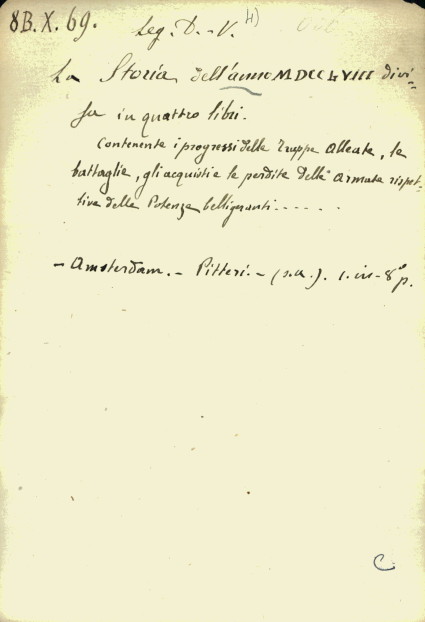 8B.X.69.
Leg. D.-V. 4)
La Storia dell'anno MDCCLVIII divi-
sa in quattro libri.
Contenente i progressi delle Truppe Alleate, le
battaglie, gli acquisti e le perdite delle Armate rispet-
tive delle Potenze belligeranti.......
- Amsterdam. - Pitteri. - (s.a.). 1. in-8° p.
C